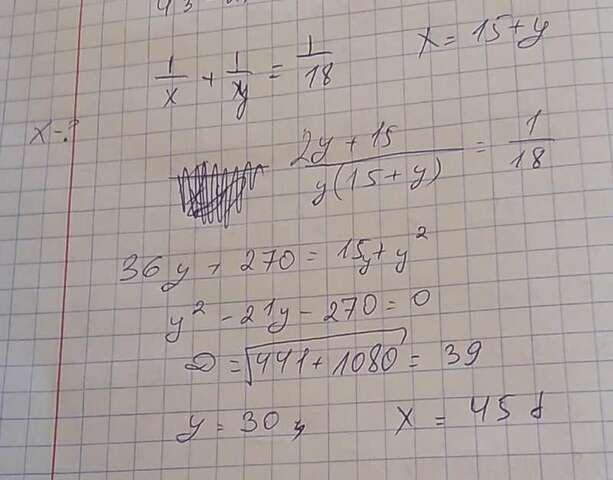 1/x + 1/y = 1/18 x = 15 + y
x - ?
2y + 15 / y(15 + y) = 1/18
36y + 270 = 15y + y²
y² - 21y - 270 = 0
D = √441 + 1080 = 39
y = 30 x = 45